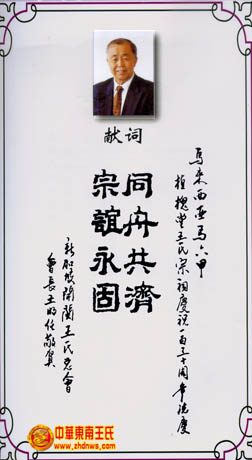 献词
马来西亚马六甲
植槐堂王氏宗祠慶祝一百三十周年誌慶
同舟共濟
宗誼永固
新加坡開閩王氏总會
會長王敬賀
中華東南王氏
www.zhdnws.com